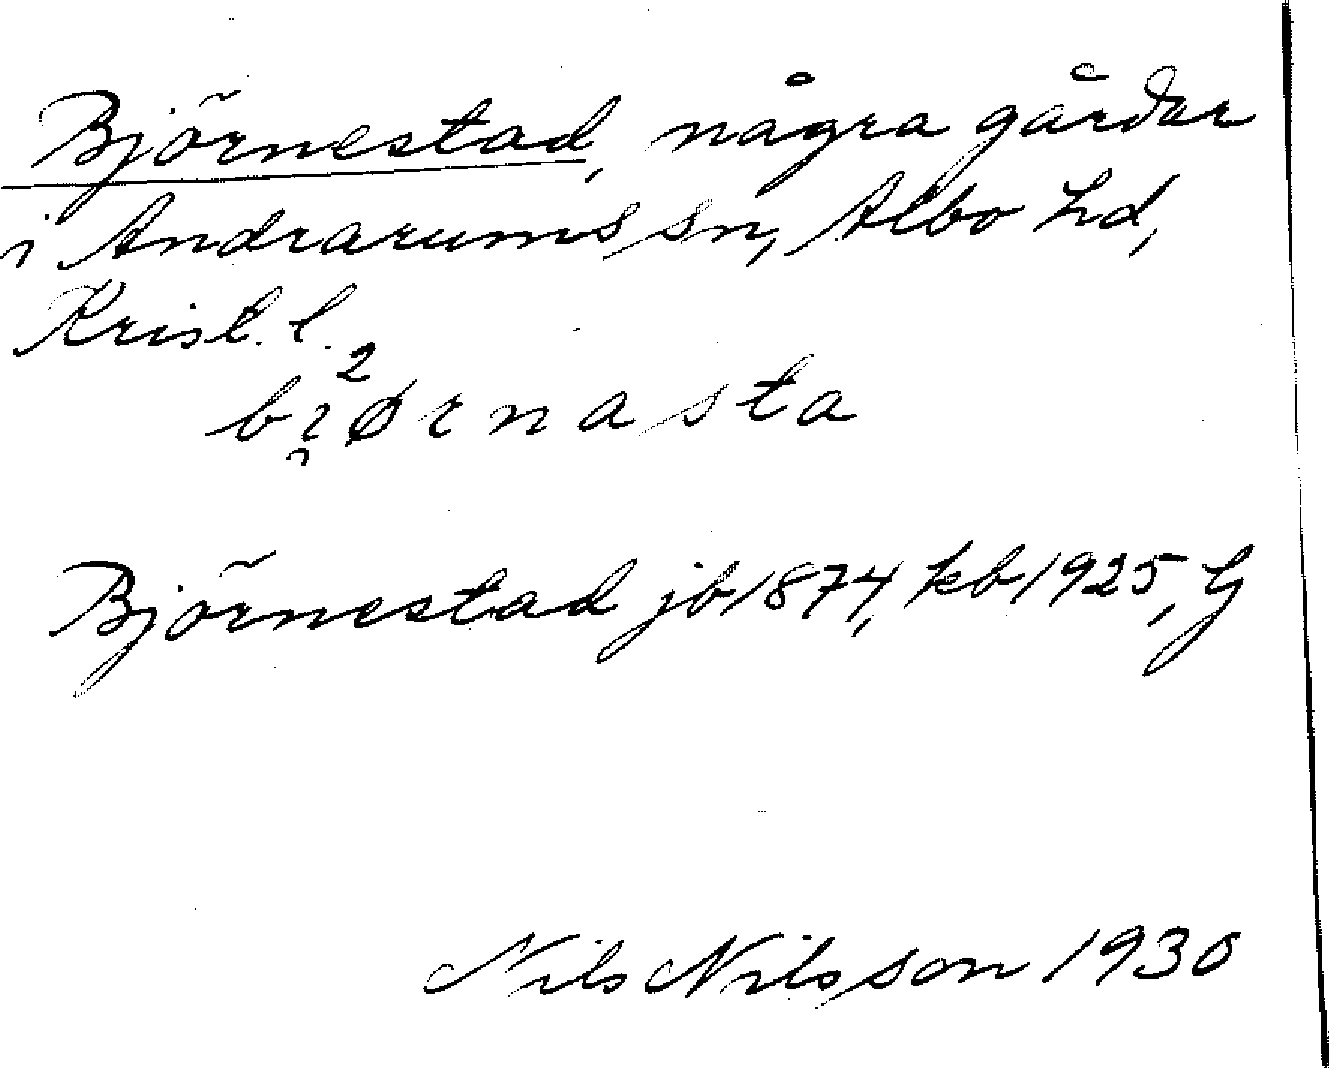 Björnestad, några gårdar
i Andrarums sn, Albo hd,
Krist. l.
bi̯2ørnasta
Björnestad jb 1874, kb 1925, G
Nils Nilsson 1930